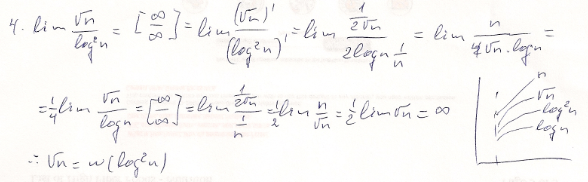 4. lim √n / log²n = [∞/∞] = lim (√n)' / (log²n)' = lim (1/(2√n)) / (2logn 1/n) = lim n / (4√n · logn) =
= 1/4 lim √n / logn = [∞/∞] = lim (1/(2√n)) / (1/n) = 1/2 lim n/√n = 1/2 lim √n = ∞
∴ √n = w(log²n)
n
√n
log²n
logn